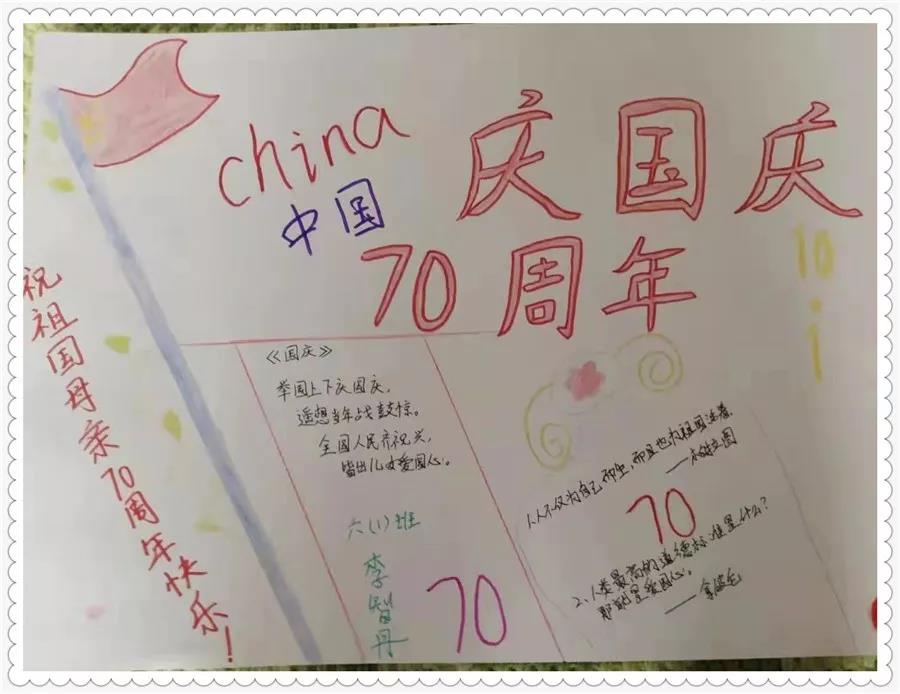 china
中国
庆国庆
70周年
10
1
祝祖国母亲70周年快乐！
《国庆》
举国上下庆国庆，
遥想当年战鼓惊。
全国人民齐祝兴，
皆出儿女爱国心。
六(1)班
李智丹
70
1.人不仅为自己而生，而且也为祖国活着
——柏拉图
70
2.人类最高的道德标准是什么？
那就是爱国心。
——拿破仑